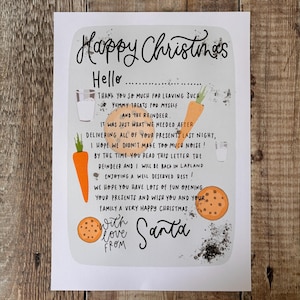 Happy Christmas
Hello ....................
THANK YOU SO MUCH FOR LEAVING SUCH
YUMMY TREATS FOR MYSELF
AND THE REINDEER
IT WAS JUST WHAT WE NEEDED AFTER
DELIVERING ALL OF YOUR PRESENTS LAST NIGHT,
I HOPE WE DIDN'T MAKE TOO MUCH NOISE!
BY THE TIME YOU READ THIS LETTER THE
REINDEER AND I WILL BE BACK IN LAPLAND
ENJOYING A WELL DESERVED REST!
WE HOPE YOU HAVE LOTS OF FUN OPENING
YOUR PRESENTS AND WISH YOU AND YOUR
FAMILY A VERY HAPPY CHRISTMAS
with
love
FROM
Santa